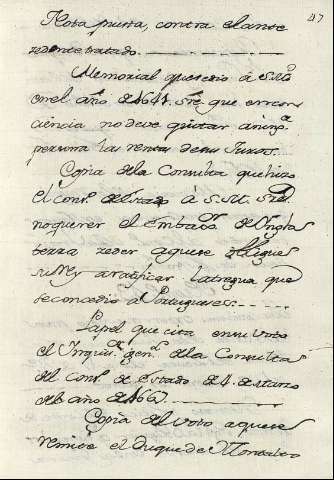 47
Nota puesta, contra el ante
zedente tratado.
Memorial que se dio á S. Mg.
en el año de 1641. Sre. que en con
ciencia no deve quitar á ning.ª
persona las rentas de sus Juros.
Copia de la Consulta que hizo
el cons.º de Estado á S. M. Sre.
no querer el embax.or de Ingla
terra zeder aque se
su Rey a ratificar la tregua que
se concedio a Portugueses.
Papel que cita en su voto
el Inquis.or gen.l de la Consulta
del Cons.º de Estado de 4. de Marzo
del año de
Copia del voto aque se
remite el Duque de Montalto